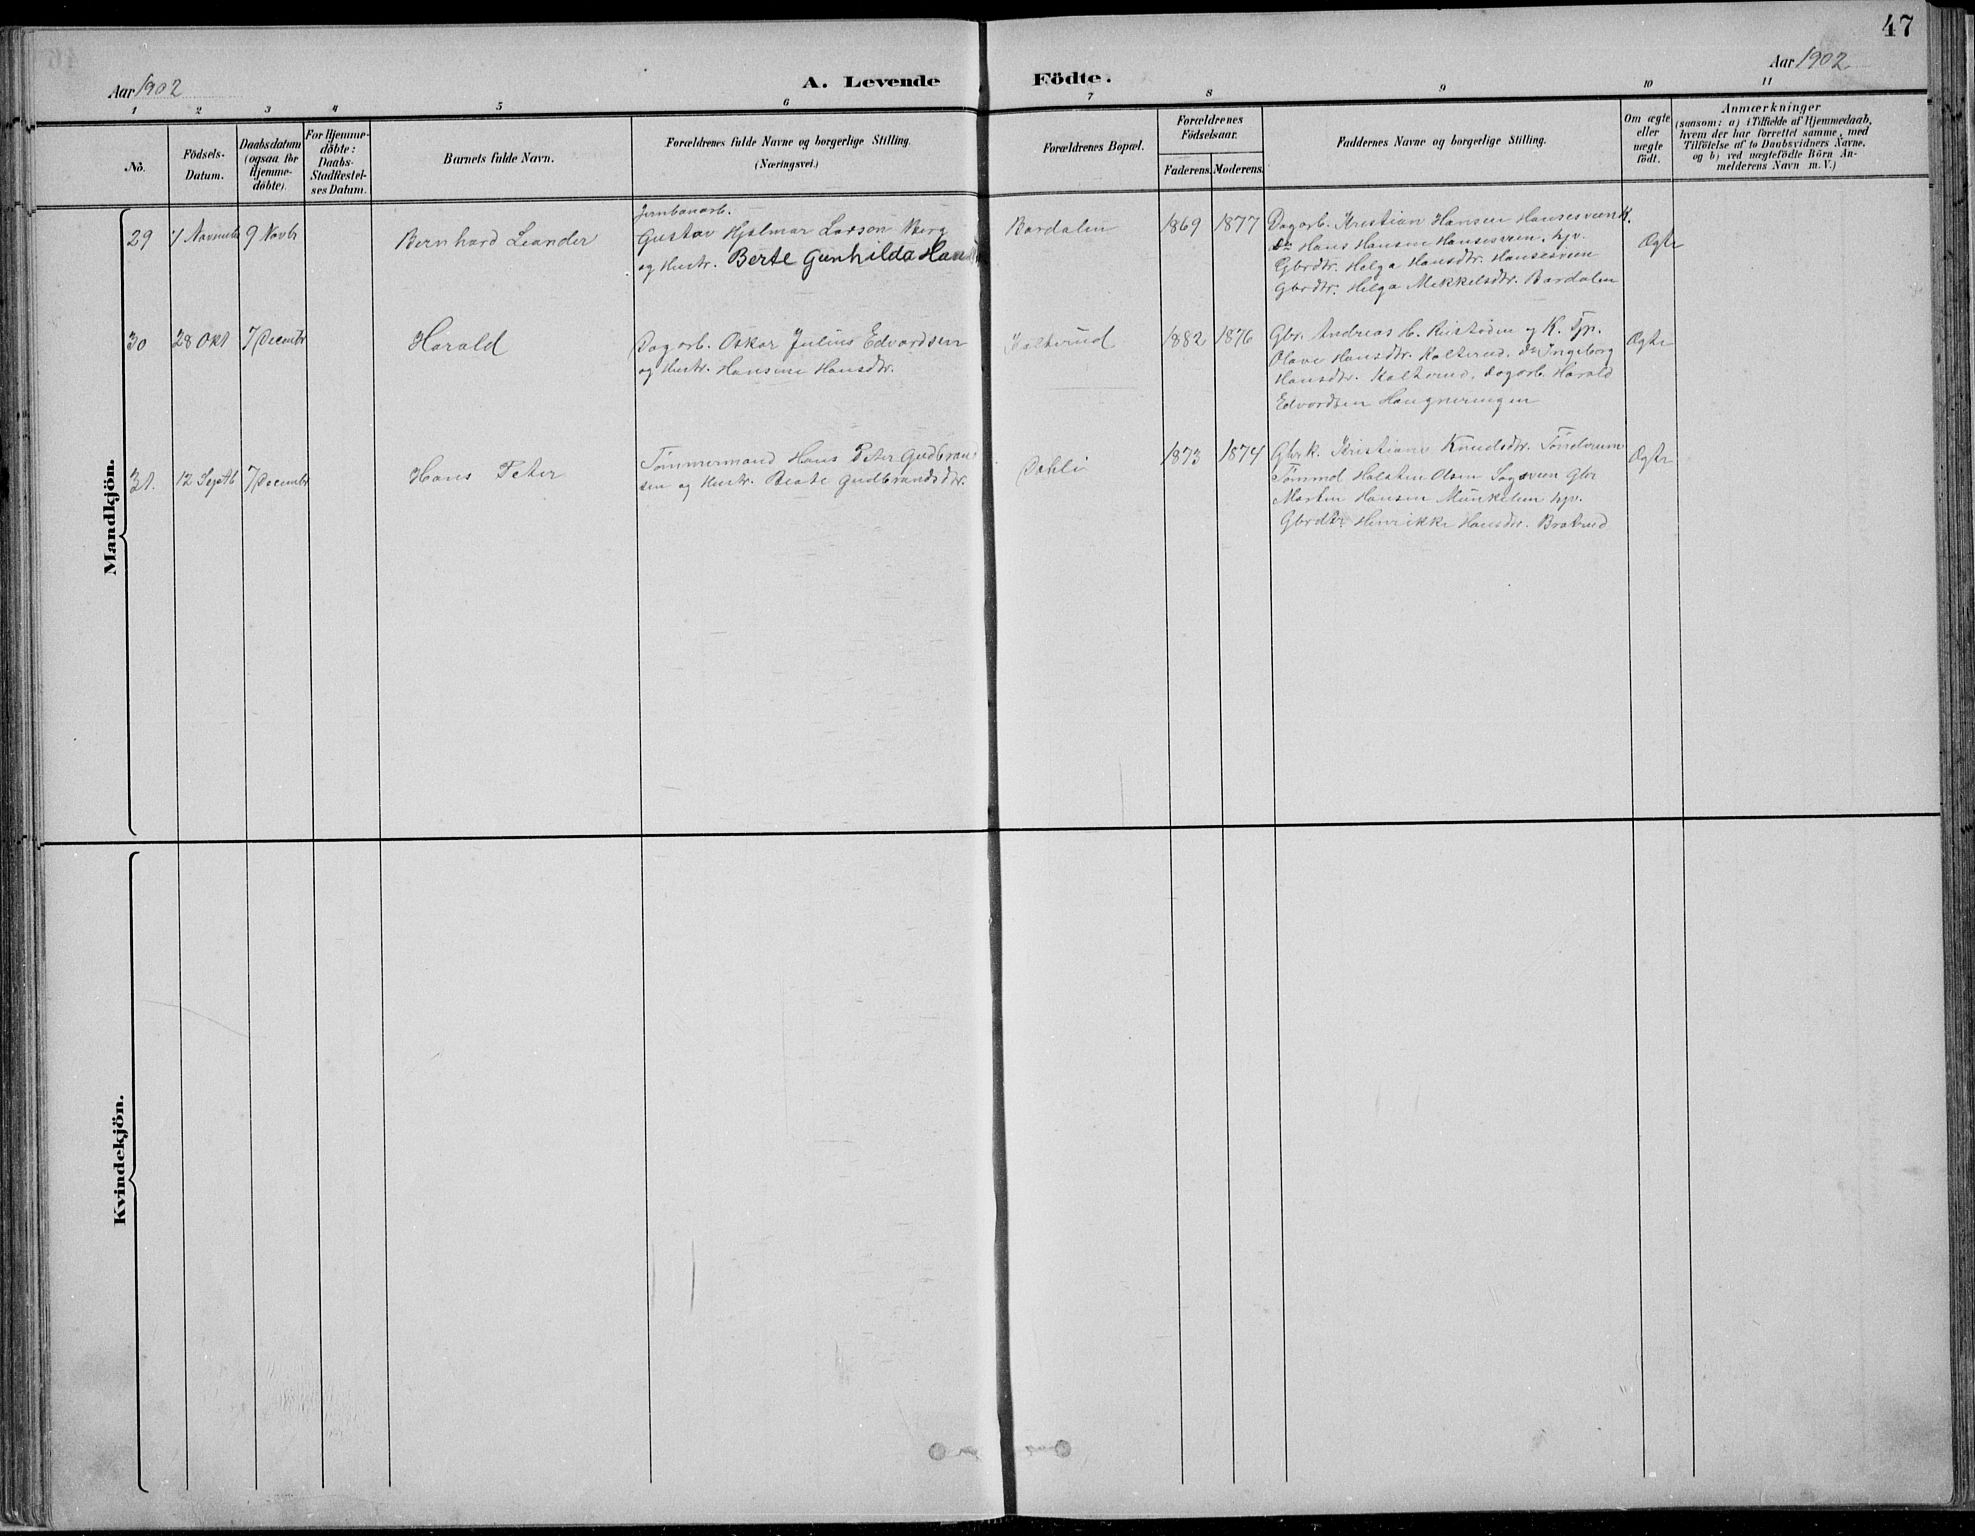 47
Aar 1902
A. Levende Födte.
Aar 1902
1 2 3 4 5 6 7 8 9 10 11
No.
Födsels-
Datum.
Daabsdatum
(ogsaa for
Hjemme-
döbte).
For Hjemme-
döbte:
Daabs-
Stadfæstel-
ses Datum.
Barnets fulde Navn.
Forældrenes fulde Navne og borgerlige Stilling.
(Næringsvei.)
Forældrenes Bopæl.
Forældrenes
Födselsaar.
Faderens. Moderens.
Faddernes Navne og borgerlige Stilling.
Om ægte
eller
uægte
födt.
Anmærkninger
(saasom: a) i Tilfælde af Hjemmedaab,
hvem der har forrettet samme, med
Tilföielse af to Daabsvidners Navne,
og b) ved uægtefödte Börn An-
melderens Navn m. V.)
Mandkjön.
29
9 Novbr
Bernhard Leander
Jernbanarb.
Gustav Hjalmar Larson Berg
og Hustr. Berte Gunhilda
Bardalen
1869 1877
Dagarb. Kristian Hansen Hansesveen K.
do Hans Hansen Hansesveen, hjv.
Gbrdtr. Helga Hansdtr. Hansesveen
Gbrdtr. Helga Mikkelsdtr. Bardalen
Ægte
30
28 Okt
7 Decembr
Harald
Dagarb. Oskar Julius Edvardsen
og Hustr. Hansine Hansdtr.
Kalterud
1882 1876
Gbr. Andreas H. og K. Tjp.
Olave Hansdtr. Kalterud, do Ingeborg
Hansdtr. Kalterud, dagarb. Harald
Edvardsen
Ægte
31.
12 Septb
7 Decembr
Hans Peter
Tömmermand Hans Peter Gudbrand
sen og Hustr. Beate Gudbrandsdtr.
Dahli
1873 1874
Gbrk. Kristiane Knudsdtr. Tönderum
Tömmd Halsten Olsen Sagsveen Gbr
Martin Hansen Munkelien hjv.
Gbrdtr Henrikke Hansdtr. Braterud
Ægte
Kvindekjön.